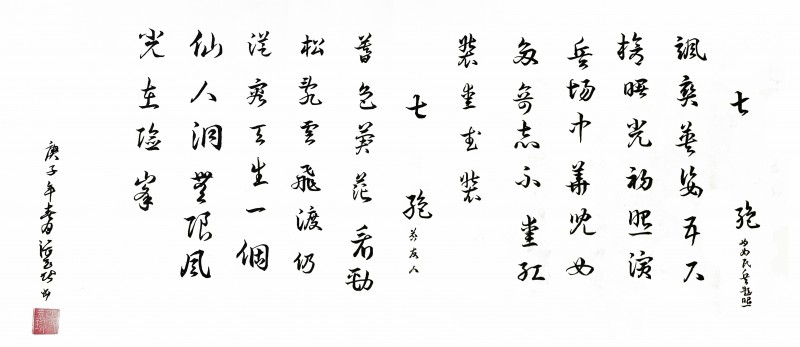 七 绝 为女民兵题照
飒爽英姿五尺
枪曙光初照演
兵场中华儿女
多奇志不爱红
装爱武装
七 绝 为友人
暮色苍茫看劲
松乱云飞渡仍
从容天生一个
仙人洞无限风
光在险峰
庚子年春日